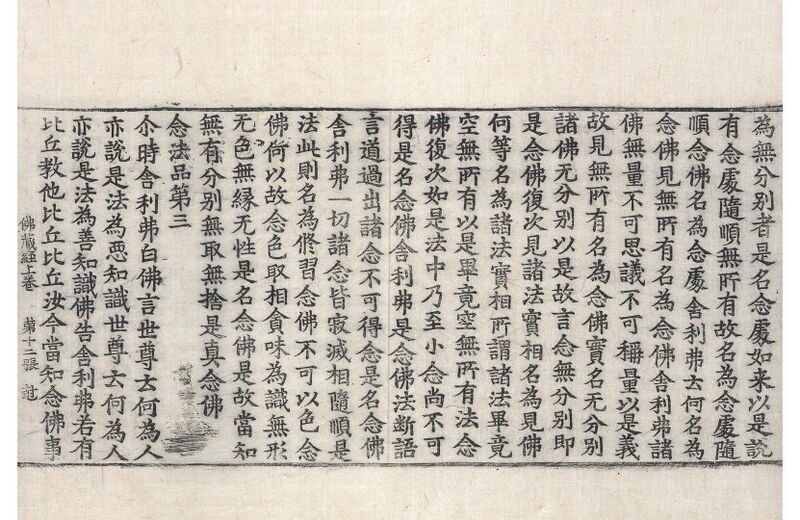 為無分別者是名念處如来以是說
有念處隨順無所有故名為念處隨
順念佛名為念處舍利弗云何名為
念佛見無所有名為念佛舍利弗諸
佛無量不可思議不可稱量以是義
故見無所有名為念佛實名无分別
諸佛无分別以是故言念無分別即
是念佛復次見諸法實相名為見佛
何等名為諸法實相所謂諸法畢竟
空無所有以是畢竟空無所有法念
佛復次如是法中乃至小念尚不可
得是名念佛舍利弗是念佛法斷語
言道過出諸念不可得念是名念佛
舍利弗一切諸念皆寂滅相隨順是
法此則名為修習念佛不可以色念
佛何以故念色取相貪味為識無形
无色無縁无性是名念佛是故當知
無有分別無取無捨是真念佛
念法品第三
尒時舍利弗白佛言世尊云何為人
亦說是法為惡知識世尊云何為人
亦說是法為善知識佛告舍利弗若有
比丘教他比丘比丘汝今當知念佛事
佛藏経上卷 第十二張